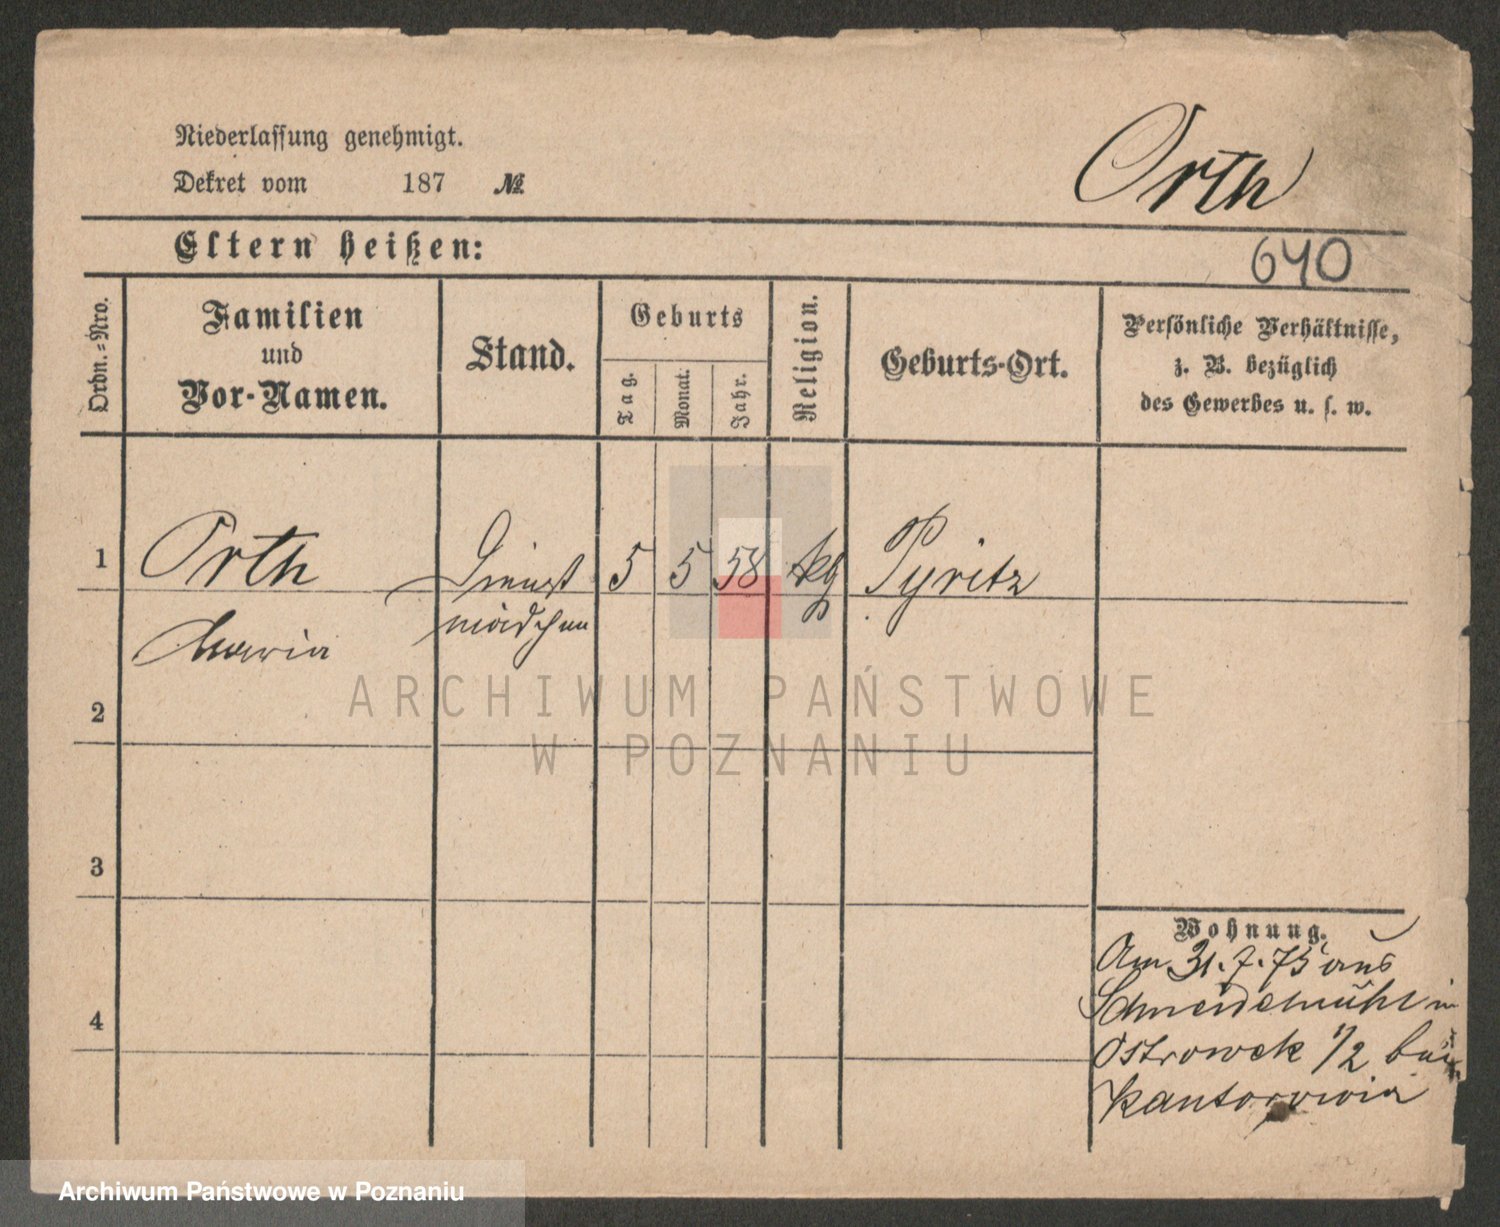 Niederlassung genehmigt.
Orth
Dekret vom 187 №
Eltern heißen:
640
Ordn.-Nro.
Familien
und
Vor-Namen.
Stand.
Geburts
Tag.
Monat.
Jahr.
Religion.
Geburts-Ort.
Persönliche Verhältnisse,
z. B. bezüglich
des Gewerbes u. s. w.
1 Orth Dienst 5 5 58 Pyritz
Maria mädchen
2
3
4
Wohnung.
Am 31.7.75 aus
Schneidemühl in
Ostrowek 1/2 bei
Kantorowicz
ARCHIWUM PAŃSTWOWE
W POZNANIU
Archiwum Państwowe w Poznaniu